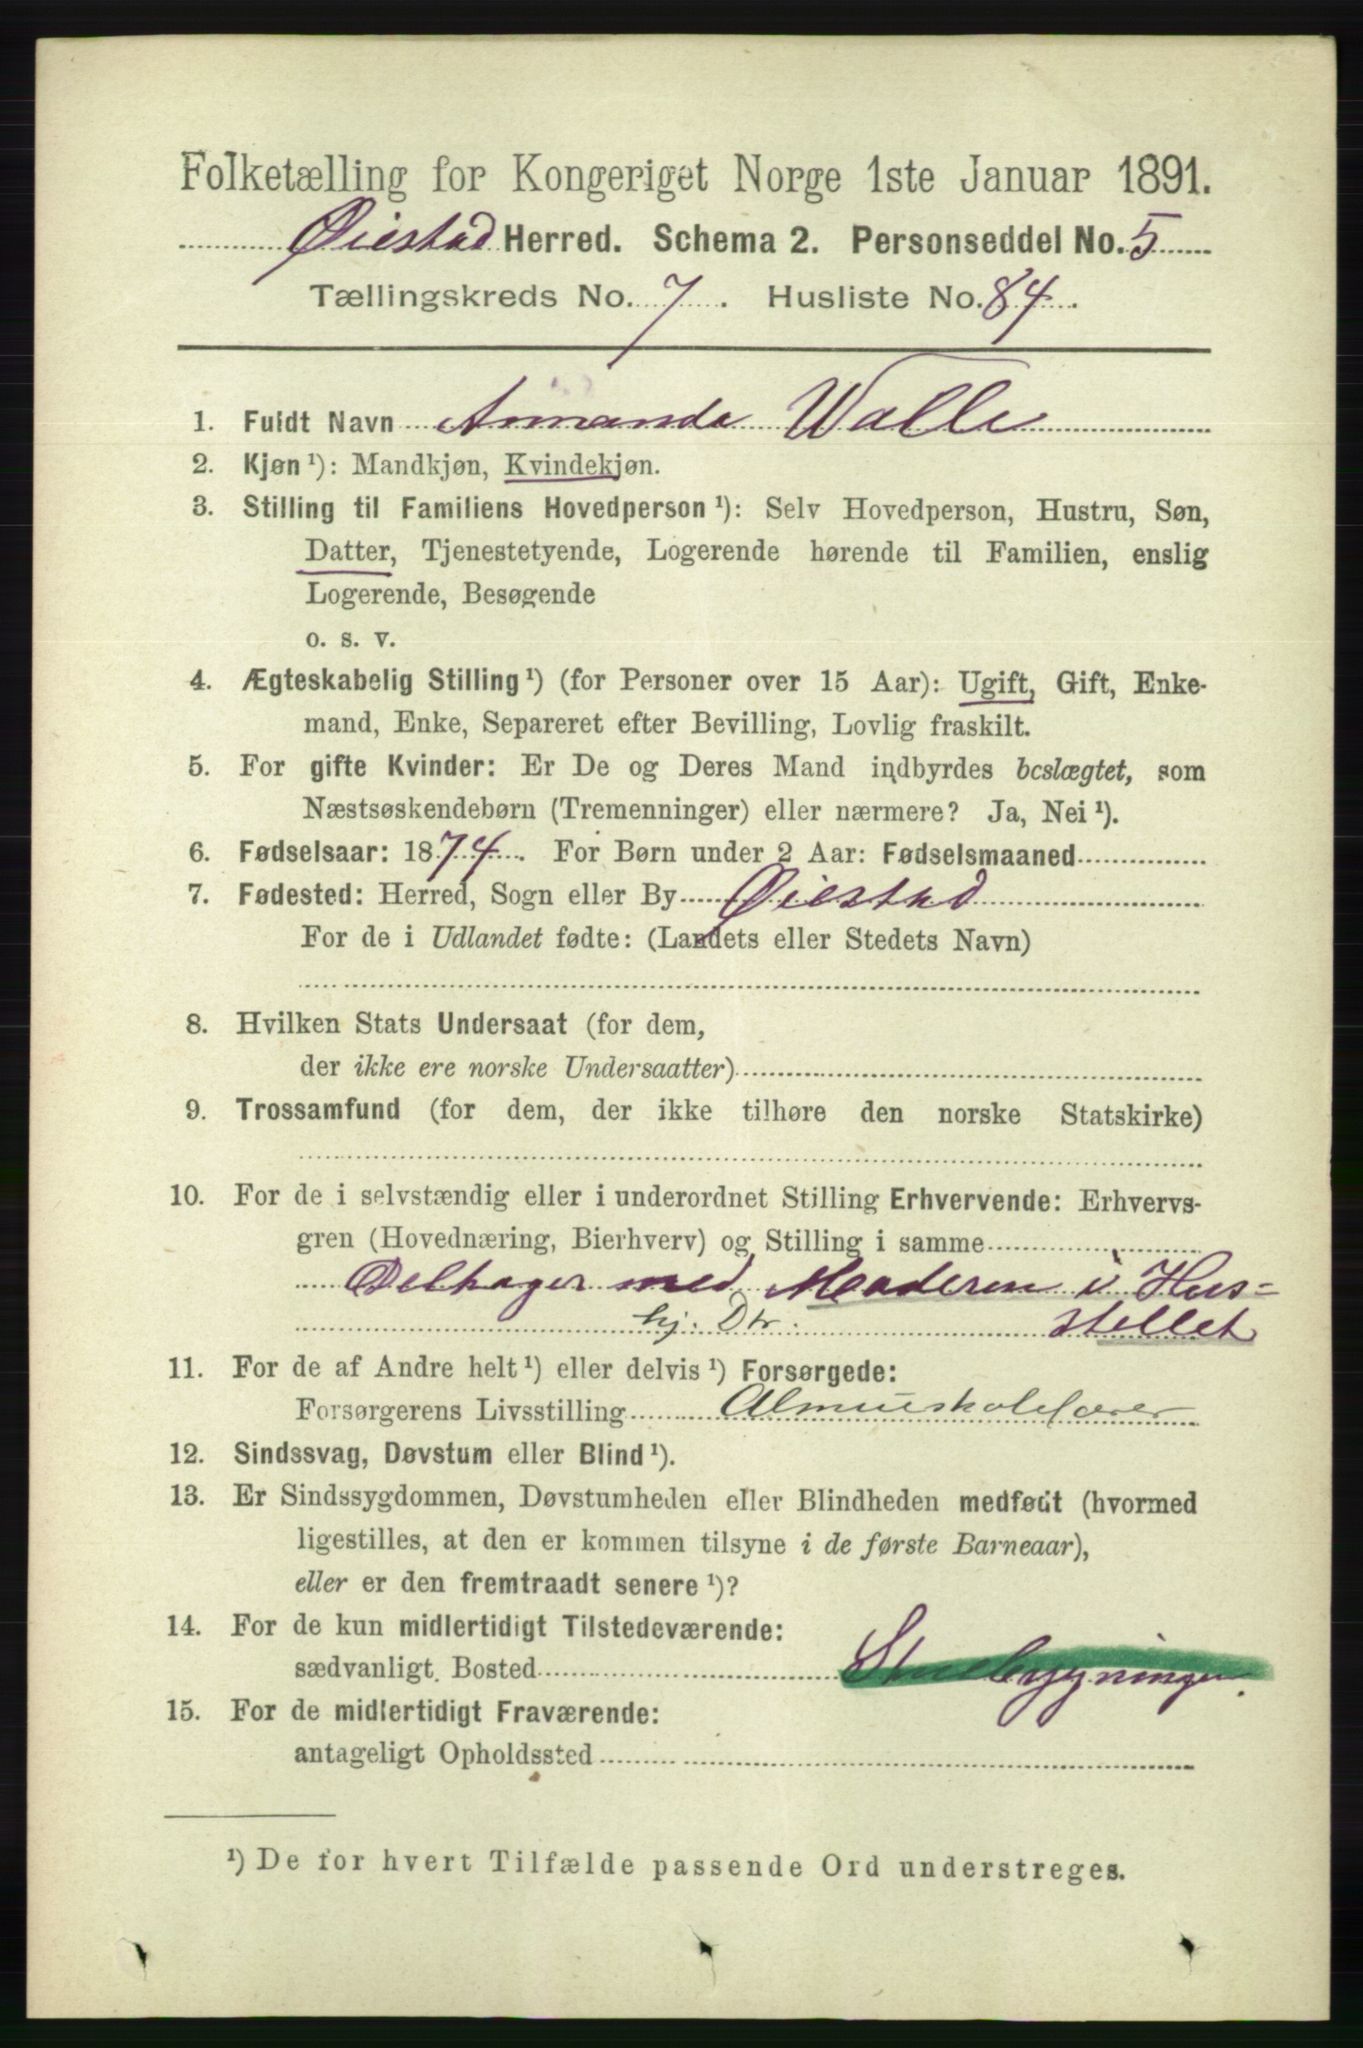 Folketælling for Kongeriget Norge 1ste Januar 1891.
Øiestad Herred. Schema 2. Personseddel No. 5
Tællingskreds No. 7. Husliste No. 84.
1. Fuldt Navn Amanda Walle
2. Kjøn ¹): Mandkjøn, Kvindekjøn.
3. Stilling til Familiens Hovedperson ¹): Selv Hovedperson, Hustru, Søn,
Datter, Tjenestetyende, Logerende hørende til Familien, enslig
Logerende, Besøgende
o. s. v.
4. Ægteskabelig Stilling ¹) (for Personer over 15 Aar): Ugift, Gift, Enke-
mand, Enke, Separeret efter Bevilling, Lovlig fraskilt.
5. For gifte Kvinder: Er De og Deres Mand indbyrdes beslægtet, som
Næstsøskendebørn (Tremenninger) eller nærmere? Ja, Nei ¹).
6. Fødselsaar: 1874. For Børn under 2 Aar: Fødselsmaaned
7. Fødested: Herred, Sogn eller By Øiestad
For de i Udlandet fødte: (Landets eller Stedets Navn)
8. Hvilken Stats Undersaat (for dem,
der ikke ere norske Undersaatter)
9. Trossamfund (for dem, der ikke tilhøre den norske Statskirke)
10. For de i selvstændig eller i underordnet Stilling Erhvervende: Erhvervs-
gren (Hovednæring, Bierhverv) og Stilling i samme
Deltager med Moderen i Hus-
hj. Dtr. stellet
11. For de af Andre helt ¹) eller delvis ¹) Forsørgede:
Forsørgerens Livsstilling Almueskolelærer
12. Sindssvag, Døvstum eller Blind ¹).
13. Er Sindssygdommen, Døvstumheden eller Blindheden medfødt (hvormed
ligestilles, at den er kommen tilsyne i de første Barneaar),
eller er den fremtraadt senere ¹)?
14. For de kun midlertidigt Tilstedeværende:
sædvanligt Bosted Stuebygningen.
15. For de midlertidigt Fraværende:
antageligt Opholdssted
¹) De for hvert Tilfælde passende Ord understreges.